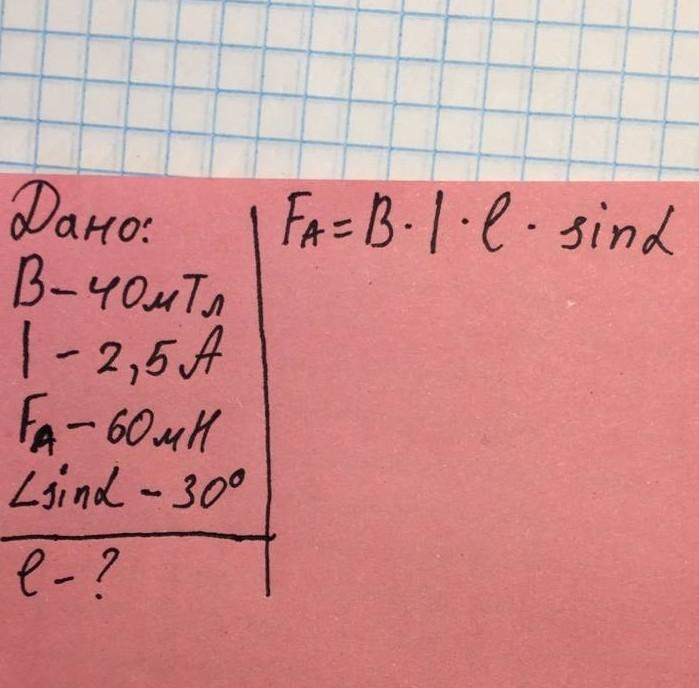 Дано:
B – 40 мТл
I – 2,5 А
FА – 60 мН
∠sinα – 30°
l – ?
FА = B · I · l · sinα